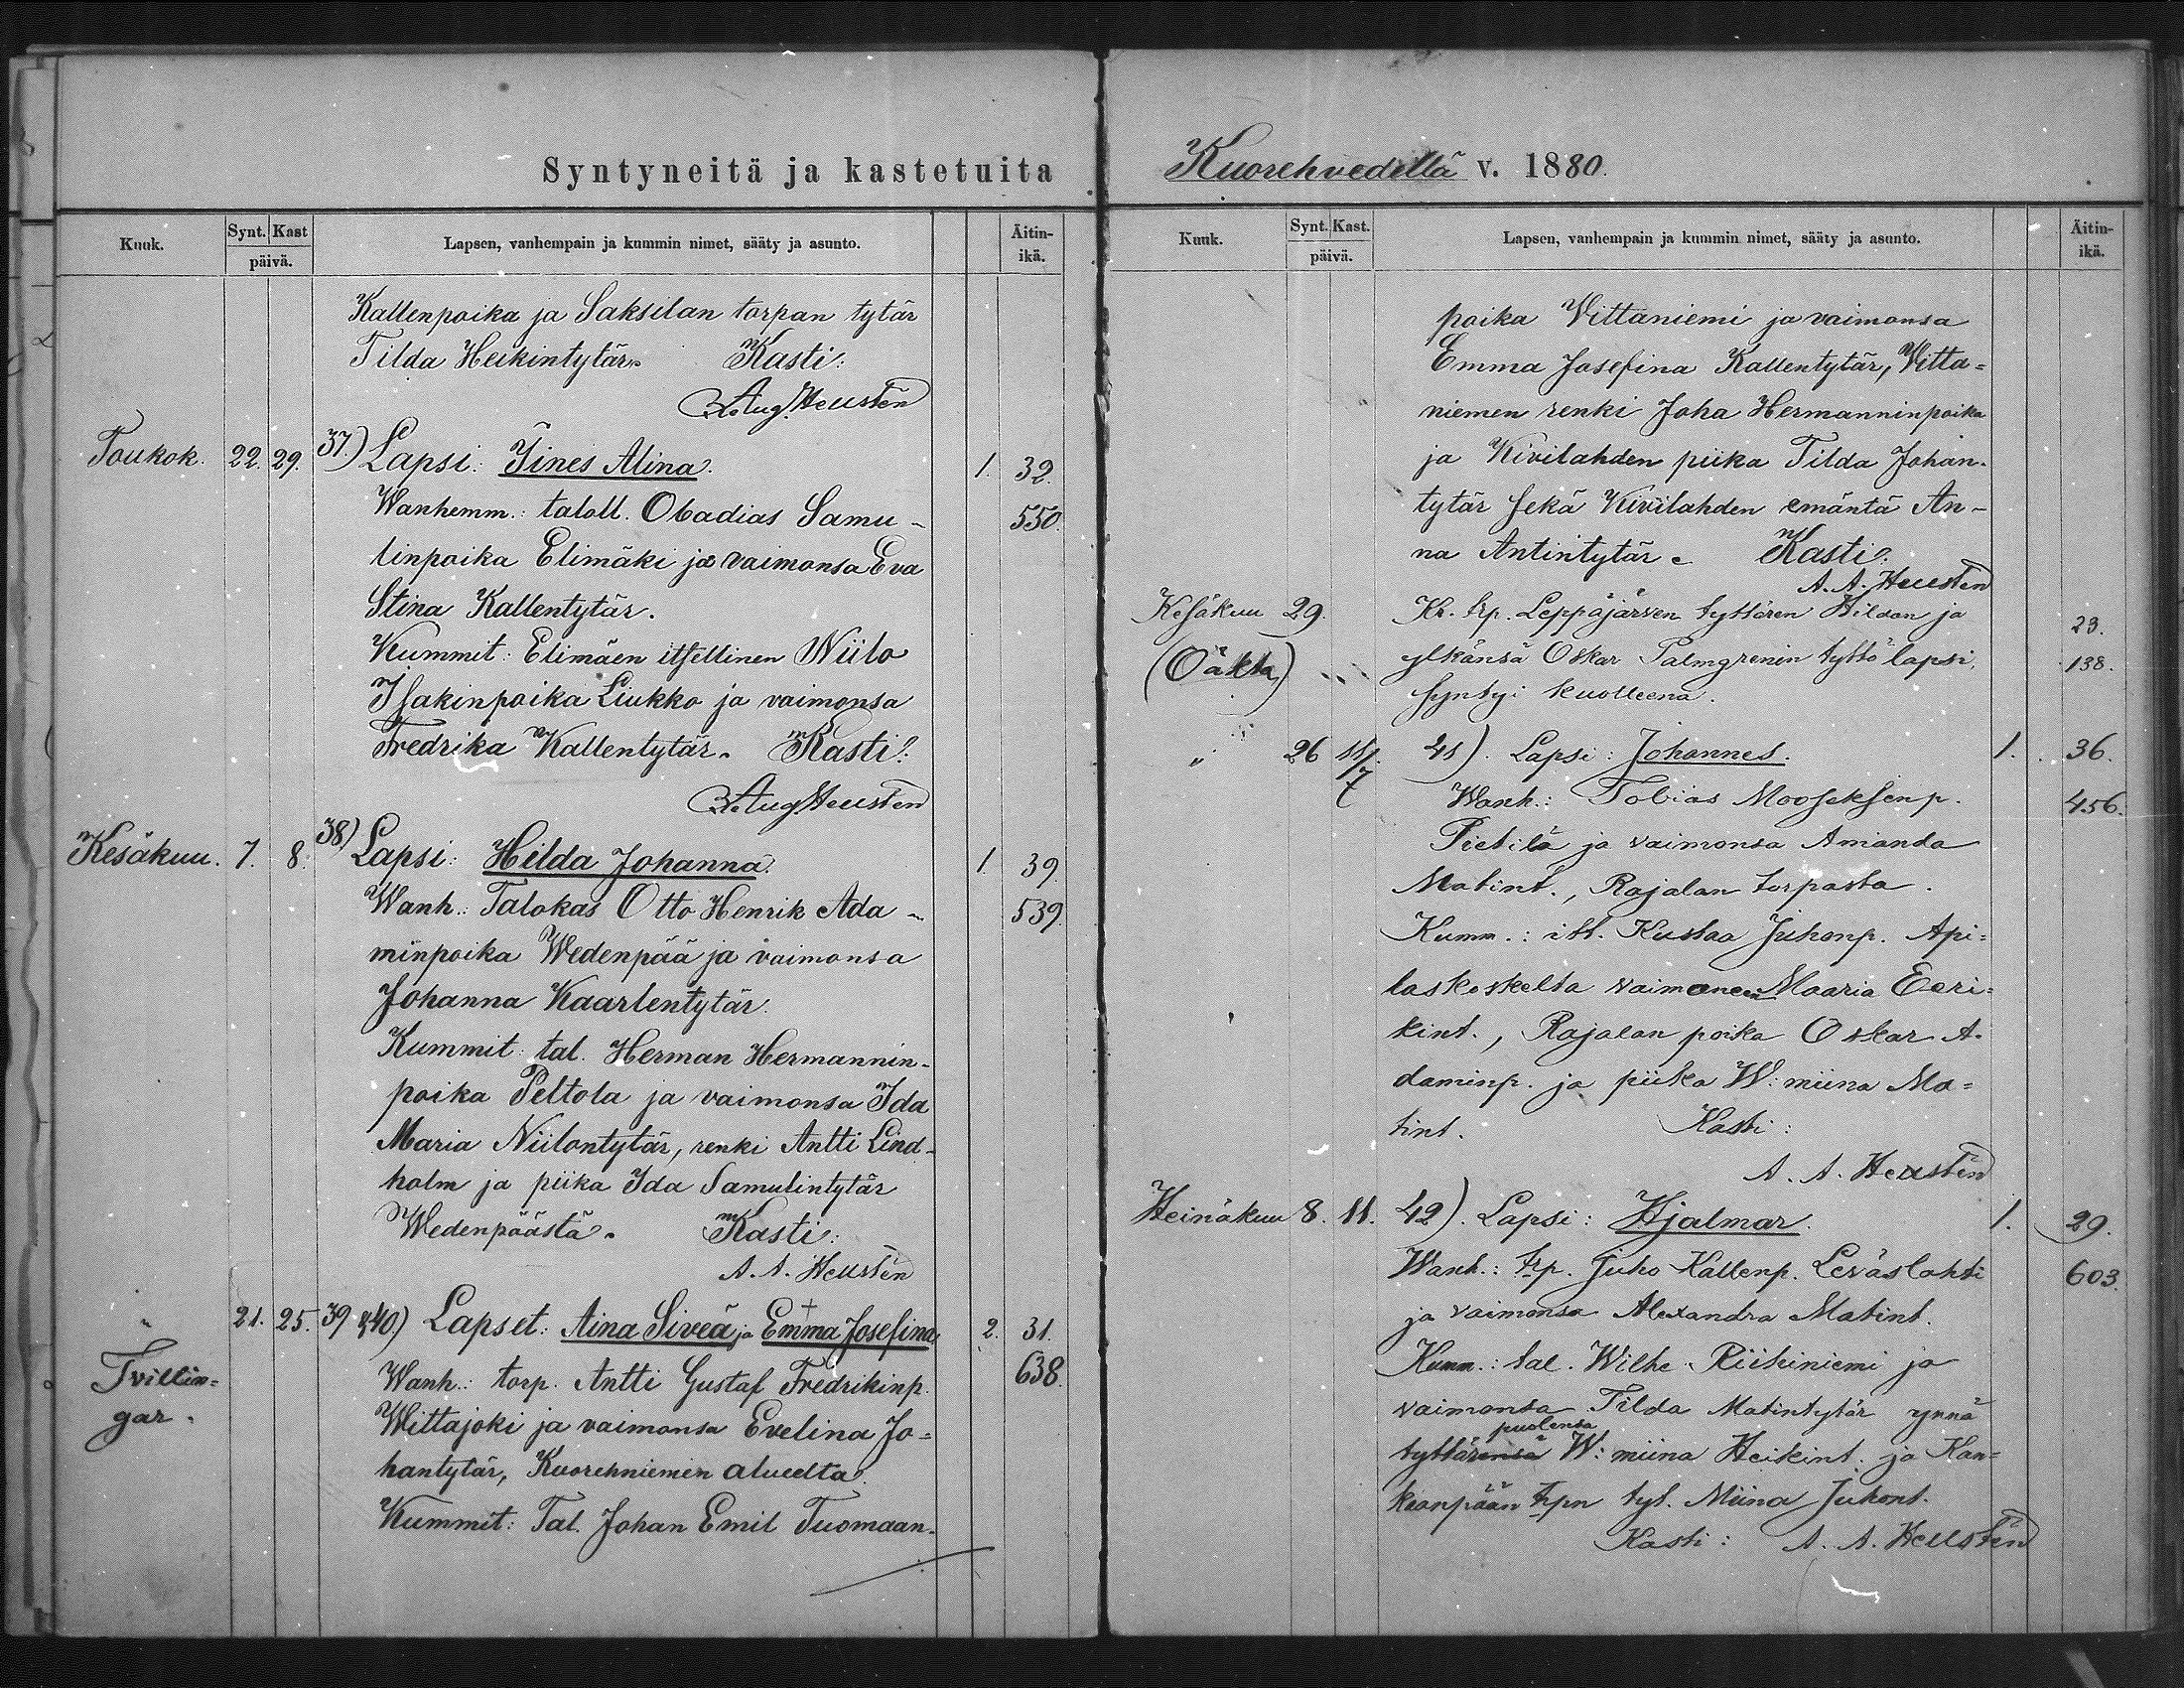 Syntyneitä ja kastetuita
Kuuk. Synt. Kast päivä. Lapsen, vanhempain ja kummin nimet, sääty ja asunto. Äitin-ikä.
Kallenpoika ja Saksilan torpan tytär
Tilda Heikintytär. Kasti:
A. Aug. Heusten
Toukok. 22. 29. 37.) Lapsi: Iines Alina. 1. 32.
Wanhemm.: taloll. Obadias Samu- 550.
linpoika Elimäki ja vaimonsa Eva
Stina Kallentytär.
Kummit: Elimäen itsellinen Niilo
Isakinpoika Liukko ja vaimonsa
Fredrika Kallentytär. Kasti:
A. Aug. Heusten
Kesäkuu. 7. 8. 38) Lapsi: Hilda Johanna. 1. 39.
Wanh.: Talokas Otto Henrik Ada- 539.
minpoika Wedenpää ja vaimonsa
Johanna Kaarlentytär.
Kummit: tal. Herman Hermannin-
poika Peltola ja vaimonsa Ida
Maria Niilontytär, renki Antti Lind-
holm ja piika Ida Samulintytär
Wedenpäästä. Kasti:
A. A. Heusten
" 21. 25. 39 & 40) Lapset: Aina Siveä ja Emma Josefina 2. 31.
Tvillin= Wanh.: torp. Antti Gustaf Fredrikinp. 638.
gar. Wittajoki ja vaimonsa Evelina Jo=
hantytär, Kuorehniemen alueelta.
Kummit: Tal. Johan Emil Tuomaan-
Kuorehvedellä v. 1880.
Kuuk. Synt. Kast. päivä. Lapsen, vanhempain ja kummin nimet, sääty ja asunto. Äitin-ikä.
poika Wittaniemi ja vaimonsa
Emma Josefina Kallentytär, Witta=
niemen renki Joha Hermanninpoika
ja Kivilahden piika Tilda Johan-
tytär sekä Kivilahden emäntä An-
na Antintytär. Kasti:
A. A. Heusten
Kesäkuu 29. Kr. trp. Leppäjärven tyttären Hildan ja 23.
(Oäkta) ylkänsä Oskar Palmgrenin tyttö lapsi, 138.
syntyi kuolleena.
" 26 11/7 41). Lapsi: Johannes. 1. 36.
Wanh.: Tobias Mooseksenp. 456.
Pietilä ja vaimonsa Amanda
Matint., Rajalan torpasta.
Kumm.: itt. Kustaa Juhonp. Api=
laskoskelta vaimoneen Maaria Eeri=
kint., Rajalan poika Oskar A-
daminp. ja piika W:miina Ma=
tint. Kasti:
A. A. Heusten
Heinäkuu 8. 11. 42). Lapsi: Hjalmar. 1. 29.
Wanh.: trp. Juho Kallenp. Leväslahti 603.
ja vaimonsa Alexandra Matint.
Kumm.: tal. Wilhe. Riihiniemi ja
vaimonsa Tilda Matintytär ynnä
puolensa
tyttärensä W:miina Heikint. ja Kan=
keanpään trpn tyt. Miina Juhont.
Kasti: A. A. Heusten